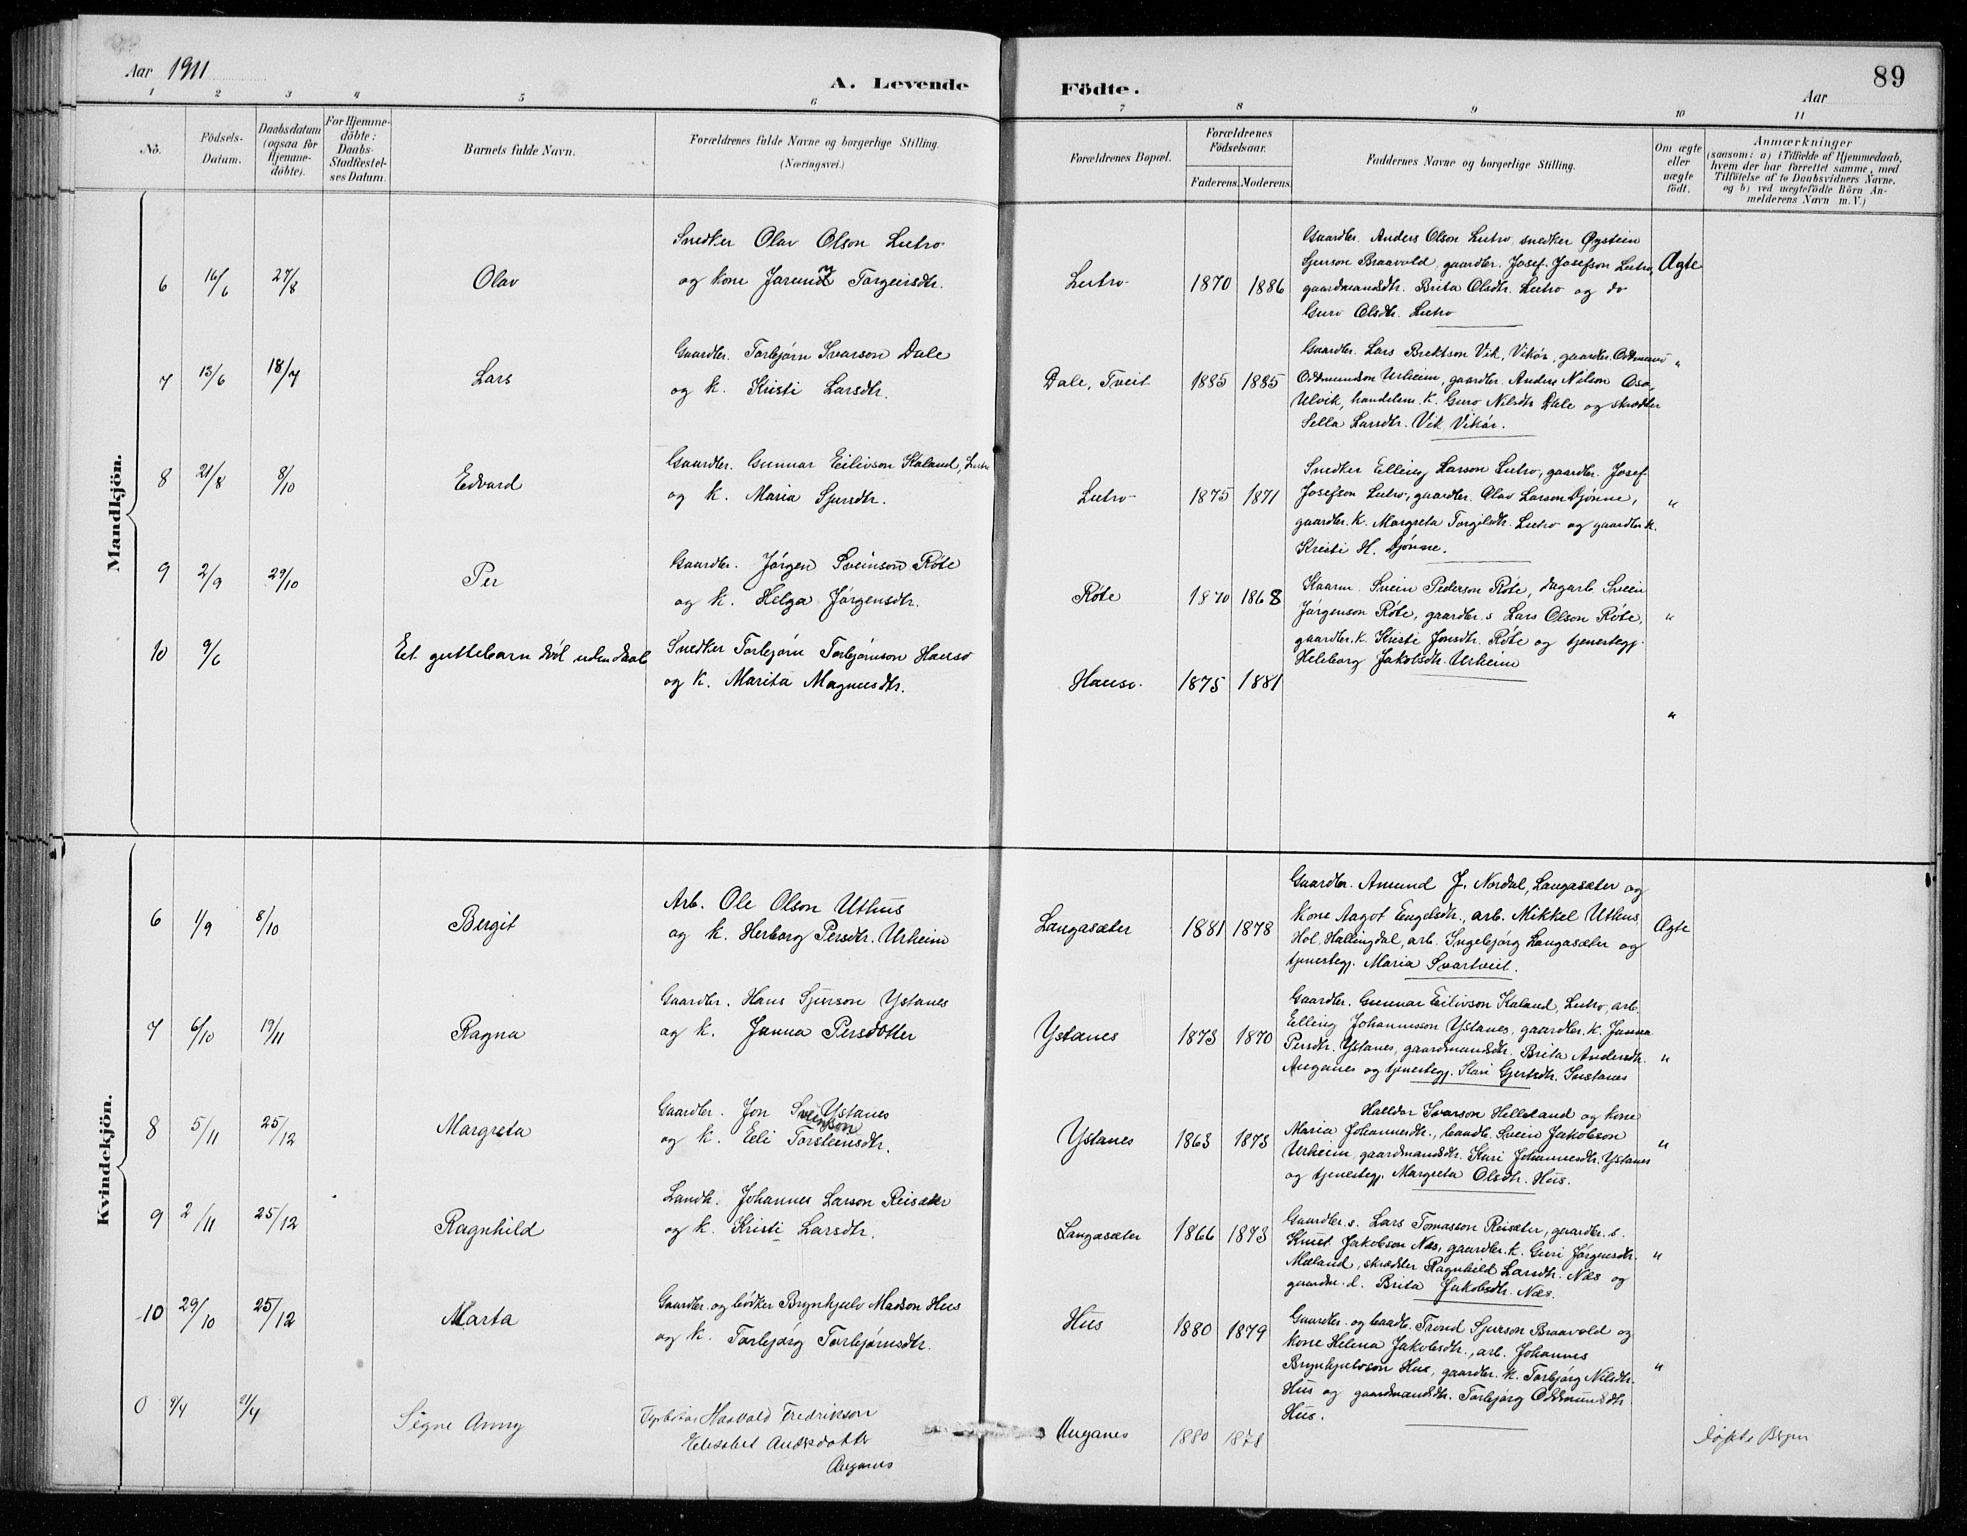 Aar 1911
A. Levende Födte.
Aar
89
1 2 3 4 5 6 7 8 9 10 11
No.
Födsels-Datum.
Daabsdatum (ogsaa for Hjemme-döbte).
For Hjemme-döbte: Daabs-Stadfæstel-ses Datum.
Barnets fulde Navn.
Forældrenes fulde Navne og borgerlige Stilling.
(Næringsvei.)
Forældrenes Bopæl.
Forældrenes Födselsaar.
Faderens. Moderens.
Faddernes Navne og borgerlige Stilling.
Om ægte eller uægte födt.
Anmærkninger
(saasom: a) i Tilfælde af Hjemmedaab,
hvem der har forrettet samme, med
Tilföielse af to Daabsvidners Navne,
og b) ved uægtefödte Börn An-
melderens Navn m. V.)
Mandkjön.
6 16/6 27/8 Olav
Snedker Olav Olson Lutro
og kone Jorunn Torgeirsdtr.
Lutro 1870 1886
Gaardbr. Anders Olson Lutro, snedker Øystein
Sjurson Braavold, gaardbr. Josef Josefson Lutro,
gaardmandsdtr. Brita Olsdtr. Lutro og do
Guro Olsdtr. Lutro
Ægte
7 13/6 18/7 Lars
Gaardbr. Torbjørn Ivarson Dale
og k. Kristi Larsdtr.
Dale, Tveit 1885 1885
Gaardbr. Lars Brektson Vik, Vikør, gaardbr. Oddmund
Oddmundson Urheim, gaardbr. Anders Nilson Osa,
Ulvik, handelsm. k. Guro Nilsdtr. Dale og skrædder
Sella Larsdtr. Vik, Vikør.
"
8 21/8 8/10 Edvard
Gaardbr. Gunnar Eilivson Kaland, Lutro
og k. Maria Sjursdtr.
Lutro 1875 1871
Snedker Elling Larson Lutro, gaardbr. Josef
Josefson Lutro, gaardbr. Olav Larson Djønne,
gaardbr. k. Margreta Torgilsdtr. Lutro og gaardbr. k.
Kristi H. Djønne.
"
9 2/9 29/10 Per
Gaardbr. Jørgen Sveinson Røte
og k. Helga Jørgensdtr.
Røte 1870 1868
Kaarm. Svein Pederson Røte, dagarb. Svein
Jørgenson Røte, gaardbr. s Lars Olson Røte,
gaardbr. k. Kristi Jonsdtr. Røte og tjenestegj.
Helborg Jakobsdtr. Urheim
"
10 9/6 Eet guttebarn død uden daab
Snedker Torbjørn Torbjørnson Hauso
og k. Marita Magnusdtr.
Hauso. 1875 1881
"
Kvindekjön.
6 1/9 8/10 Bergit
Arb. Ole Olson Uthus
og k. Herborg Persdtr. Urheim
Langasæter 1881 1878
Gaardbr. Amund J. Nordal, Langasæter og
kone Aagot Engelsdtr., arb. Mikkel Uthus,
Hol, Hallingdal, arb. Ingebjørg Langasæter og
tjenestegj. Maria Svartveit.
Ægte
7 6/10 19/11 Ragna
Gaardbr. Hans Sjurson Ystanes
og k. Janna Persdotter
Ystanes 1873 1870
Gaardbr. Gunnar Eilivson Kaland, Lutro, arb.
Elling Johannesson Ystanes, gaardbr. k. Janna
Persdtr. Ystanes, gaardmandsdtr. Brita Andersdtr.
Auganes og tjenestegj. Kari Gjertsdtr. Instanes
"
8 5/11 25/12 Margreta
Gaardbr. Jon Sveinson Ystanes
og k. Eli Torsteinsdtr.
Ystanes 1863 1873
Halldor Ivarson Helleland og kone
Maria Johannesdtr., baadb. Svein Jakobson
Urheim, gaardmandsdtr. Kari Johannesdtr. Ystanes
og tjenestegj. Margreta Olsdtr. Hus.
"
9 2/11 25/12 Ragnhild
Landh. Johannes Larson Reisæter
og k. Kristi Larsdtr.
Langasæter 1866 1873
Gaardbr. s. Lars Tomasson Reisæter, gaardbr. s.
Knut Jakobson Næs, gaardbr. k. Guri Jørgensdtr.
Mæland, skrædder Ragnhild Larsdtr. Næs og
gaardm. d. Brita Jakobsdtr. Næs.
"
10 29/10 25/12 Marta
Gaardbr. og bødker Brynhjulv Madson Hus
og k. Torbjørg Torbjørnsdtr.
Hus 1880 1879
Gaardbr. og baadb. Trond Sjurson Braavold og
kone Helena Jakobsdtr., arb. Johannes
Brynhjulvson Hus, gaardbr. k. Torbjørg Nilsdtr.
Hus og gaardmandsdtr. Torbjørg Oddmundsdtr.
Hus.
"
0 9/4 21/4 Signe Anny
Haavald Fredrikson
Elisabet Andersdotter
Auganes
Auganes 1880 1878